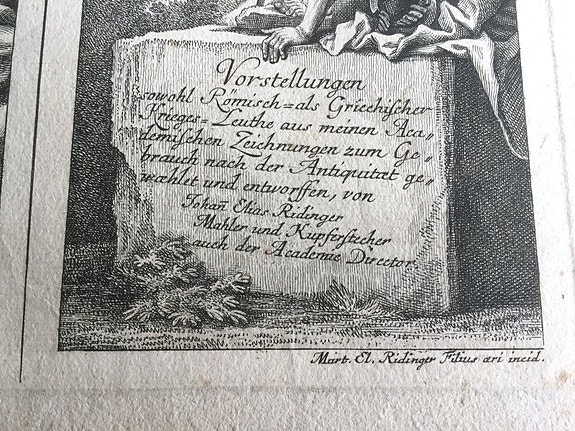 Vorstellungen
sowohl Römisch=als Griechischer
Krieges=Leuthe aus meinen Aca„
demischen Zeichnungen zum Ge„
brauch nach der Antiquitæt ge„
wæhlet und entworffen, von
Johañ Elias Ridinger
Mahler und Kupferstecher
auch der Academie Director.
Mart. El. Ridinger Filius æri incid.